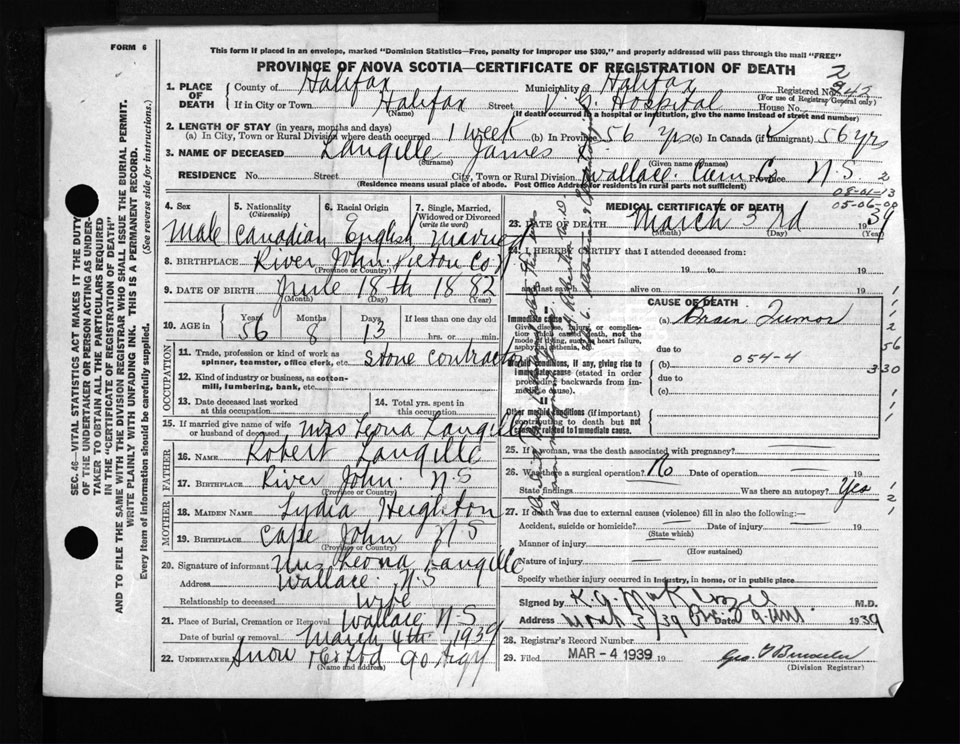 FORM 6
This form if placed in an envelope, marked "Dominion Statistics—Free, penalty for improper use $300," and properly addressed will pass through the mail "FREE"
PROVINCE OF NOVA SCOTIA—CERTIFICATE OF REGISTRATION OF DEATH
2
1. PLACE OF DEATH County of Halifax Municipality Halifax Registered No. 243
(For use of Registrar General only)
If in City or Town Halifax Street V. G. Hospital House No.
(Name) (If death occurred in a hospital or institution, give the name instead of street and number)
2. LENGTH OF STAY (in years, months and days)
(a) In City, Town or Rural Division where death occurred 1 week (b) In Province 56 yrs (c) In Canada (if immigrant) 56 yrs
3. NAME OF DECEASED Langille James
(Surname) (Given name or names)
RESIDENCE No. Street City, Town or Rural Division Wallace Cum Co Province N.S 2
(Residence means usual place of abode. Post Office Address for residents in rural parts not sufficient)
08-01-13
05-06-00
4. Sex 5. Nationality (Citizenship) 6. Racial Origin 7. Single, Married, Widowed or Divorced (write the word)
Male Canadian English Married
8. BIRTHPLACE River John Pictou Co
(Province or Country)
9. DATE OF BIRTH June 18th 1882
(Month) (Day) (Year)
10. AGE in Years Months Days If less than one day
56 8 13 hrs. or min.
OCCUPATION
11. Trade, profession or kind of work as spinner, teamster, office clerk, etc. stone contractor
12. Kind of industry or business, as cotton-mill, lumbering, bank, etc.
13. Date deceased last worked at this occupation
14. Total yrs. spent in this occupation.
15. If married give name of wife or husband of deceased Mrs Leona Langille
FATHER
16. NAME Robert Langille
17. BIRTHPLACE River John. N.S
(Province or Country)
MOTHER
18. MAIDEN NAME Lydia Heighton
19. BIRTHPLACE Cape John N S
(Province or Country)
20. Signature of informant Mrs Leona Langille
Address Wallace N.S
Relationship to deceased Wife
21. Place of Burial, Cremation or Removal Wallace N S
Date of burial or removal March 4th 1939
22. UNDERTAKER Snow & Co Ltd 90 Argy
(Name and address)
MEDICAL CERTIFICATE OF DEATH
23. DATE OF DEATH March 3rd 1939
(Day) (Year)
24. I HEREBY CERTIFY that I attended deceased from:
19 to 19
and last saw alive on 19
CAUSE OF DEATH
Immediate cause
Give disease, injury, or complication which caused death, not the mode of dying, such as heart failure, asphyxia, asthenia, etc.
(a) Brain Tumor
due to
054-4
Morbid conditions, if any, giving rise to immediate cause (stated in order proceeding backwards from immediate cause).
(b)
due to
(c)
Other morbid conditions (if important) contributing to death but not causally related to immediate cause.
56
330
25. If a woman, was the death associated with pregnancy?
26. Was there a surgical operation? No Date of operation 19
State findings Was there an autopsy? Yes
27. If death was due to external causes (violence) fill in also the following:—
Accident, suicide or homicide? Date of injury 19
(State which)
Manner of injury
(How sustained)
Nature of injury
Specify whether injury occurred in industry, in home, or in public place
Signed by K. A. MacKenzie M.D.
Address March 3/39 1939
28. Registrar's Record Number
29. Filed MAR - 4 1939 19
(Division Registrar)
SEC. 46—VITAL STATISTICS ACT MAKES IT THE DUTY OF THE UNDERTAKER OR PERSON ACTING AS UNDERTAKER TO OBTAIN ALL THE PARTICULARS REQUIRED IN THE "CERTIFICATE OF REGISTRATION OF DEATH" AND TO FILE THE SAME WITH THE DIVISION REGISTRAR WHO SHALL ISSUE THE BURIAL PERMIT.
WRITE PLAINLY WITH UNFADING INK. THIS IS A PERMANENT RECORD.
Every item of information should be carefully supplied. (See reverse side for instructions.)